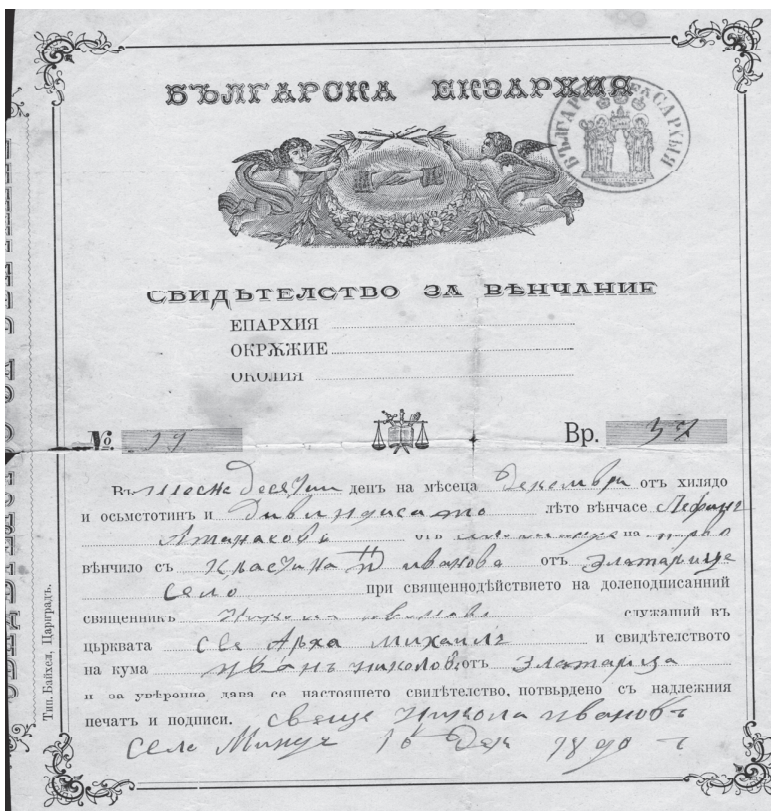 БЪЛГАРСКА ЕКЗАРХИЯ
БЪЛГАРСКА ЕКЗАРХИЯ
СВИДѢТЕЛСТВО ЗА ВѢНЧАНИЕ
ЕПАРХИЯ
ОКРѪЖИЕ
ОКОЛИЯ
№ Вр. 37
Въ шесна десѧти денъ на мѣсеца Декември отъ хилядо
и осьмстотинъ и лѣто вѣнчасе
Атанасовъ отъ на първо
вѣнчило съ Иванова отъ Златарице
Село при священнодѣйствието на долеподписанний
священникъ Никола Ивановъ служащий въ
църквата Све Арха Михаилъ и свидѣтелството
на кума Иванъ Николов отъ Златарица
и за увѣрение дава се настоящето свидѣтелство, потвърдено съ надлежния
печатъ и подписи. Свеще Никола Ивановъ
Село 16 Дек 1890
Тип. Байхел, Цариградъ.